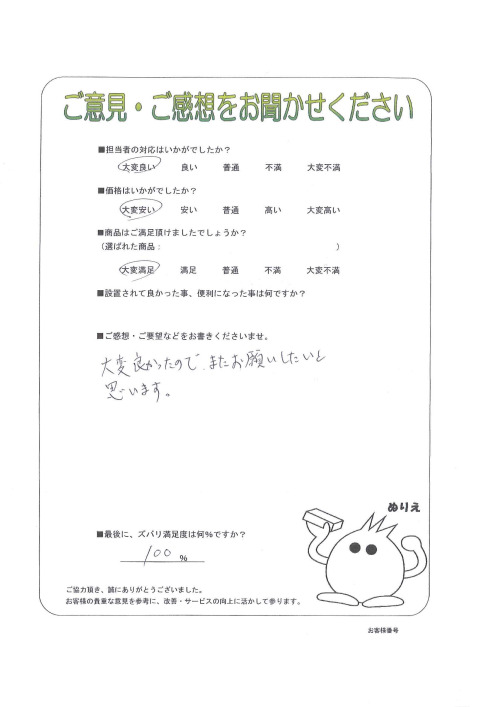 ご意見・ご感想をお聞かせください
■担当者の対応はいかがでしたか？
大変良い 良い 普通 不満 大変不満
■価格はいかがでしたか？
大変安い 安い 普通 高い 大変高い
■商品はご満足頂けましたでしょうか？
（選ばれた商品： ）
大変満足 満足 普通 不満 大変不満
■設置されて良かった事、便利になった事は何ですか？
■ご感想・ご要望などをお書きくださいませ。
大変良かったので、またお願いしたいと
思います。
ぬりえ
■最後に、ズバリ満足度は何％ですか？
100 ％
ご協力頂き、誠にありがとうございました。
お客様の貴重な意見を参考に、改善・サービスの向上に活かして参ります。
お客様番号